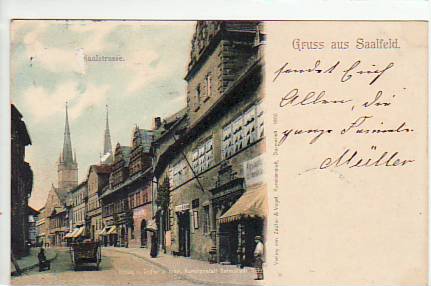 Saalstrasse.
Gruss aus Saalfeld.
sendet Euch
Allen, die
ganze Familie
Müller
Verlag von Zedler & Vogel, Kunstanstalt, Darmstadt.